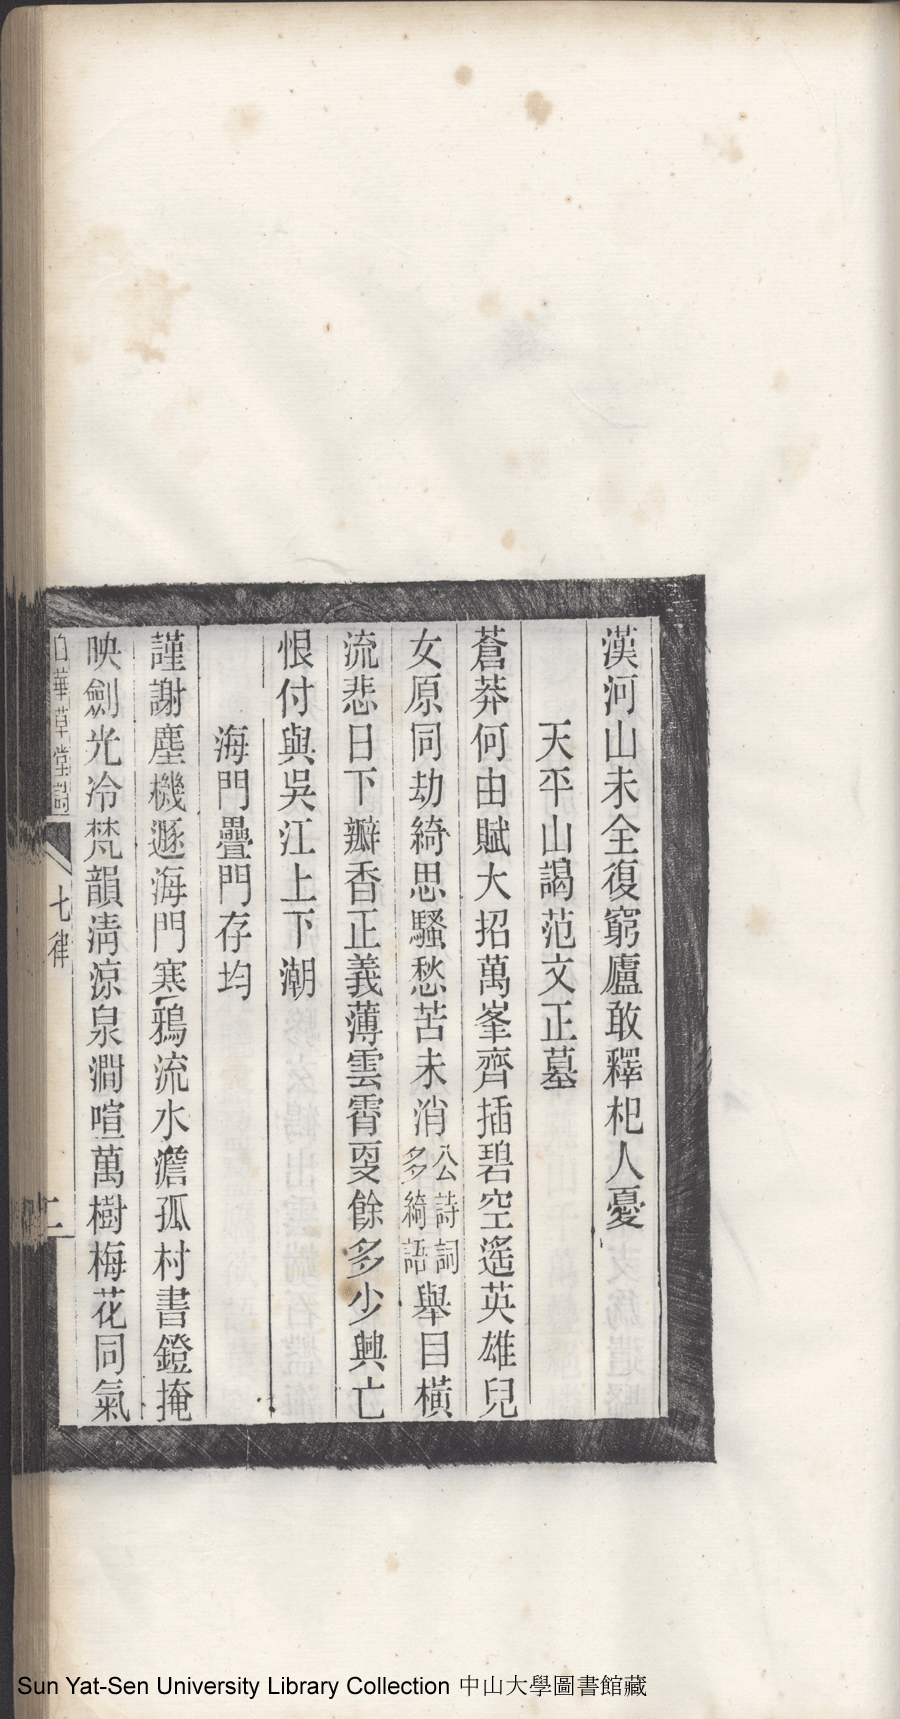 漢河山未全復窮廬敢釋杞人憂
天平山謁范文正墓
蒼莽何由賦大招萬峯齊插碧空遙英雄兒
女原同劫綺思騷愁苦未消公詩詞多綺語舉目橫
流悲日下瓣香正義薄雲霄耎餘多少興亡
恨付與吳江上下潮
海門疊門存均
謹謝塵機遯海門寒鴉流水澹孤村書鐙掩
映劍光冷梵韻淸涼泉澗喧萬樹梅花同氣
白華草堂詩
七律
二
Sun Yat-Sen University Library Collection 中山大學圖書館藏